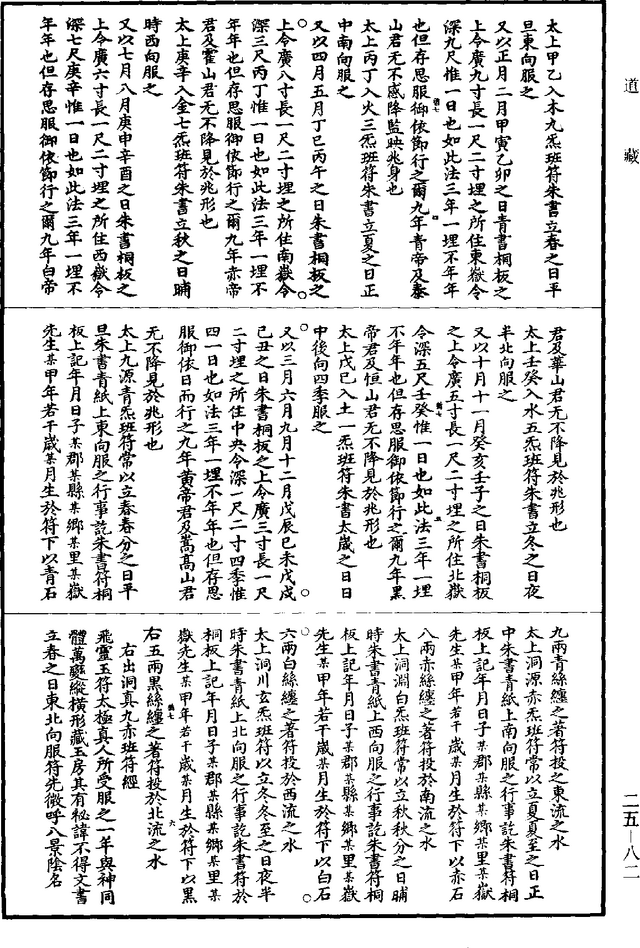 道藏
太上甲乙入木九炁班符朱書立春之日平
旦東向服之
又以正月二月甲寅乙卯之日青書桐板之
上令廣九寸長一尺二寸埋之所住東嶽令
深九尺惟一日也如此法三年一埋不年年
也但存思服御依節行之爾九年青帝及泰
山君无不感降監映兆身也
太上丙丁入火三炁班符朱書立夏之日正
中南向服之
又以四月五月丁巳丙午之日朱書桐板之
上令廣八寸長一尺二寸埋之所住南嶽令
深三尺丙丁惟一日也如此法三年一埋不
年年也但存思服御依節行之爾九年赤帝
君及霍山君无不降見於兆形也
太上庚辛入金七炁班符朱書立秋之日晡
時西向服之
又以七月八月庚申辛酉之日朱書桐板之
上令廣六寸長一尺二寸埋之所住西嶽令
深七尺庚辛惟一日也如此法三年一埋不
年年也但存思服御依節行之爾九年白帝
君及華山君无不降見於兆形也
太上壬癸入水五炁班符朱書立冬之日夜
半北向服之
又以十月十一月癸亥壬子之日朱書桐板
之上令廣五寸長一尺二寸埋之所住北嶽
令深五尺壬癸惟一日也如此法三年一埋
不年年也但存思服御依節行之爾九年黑
帝君及恒山君无不降見於兆形也
太上戊己入土一炁班符朱書太歲之日日
中後向四季服之
又以三月六月九月十二月戊辰己未戊戌
己丑之日朱書桐板之上令廣三寸長一尺
二寸埋之所住中央令深一尺二寸四季惟
四一日也如法三年一埋不年年也但存思
服御依日而行之九年黃帝君及嵩高山君
无不降見於兆形也
太上九源青炁班符常以立春春分之日平
旦朱書青紙上東向服之行事訖朱書符桐
板上記年月日子某郡某縣某鄉某里某嶽
先生某甲年若干歲某月生於符下以青石
九兩青絲纏之著符投之東流之水
太上洞源赤炁班符常以立夏夏至之日正
中朱書青紙上南向服之行事訖朱書符桐
板上記年月日子某郡某縣某鄉某里某嶽
先生某甲年若干歲某月生於符下以赤石
八兩赤絲纏之著符投於南流之水
太上洞淵白炁班符常以立秋秋分之日晡
時朱書青紙上西向服之行事訖朱書符桐
板上記年月日子某郡某縣某鄉某里某嶽
先生某甲年若干歲某月生於符下以白石
六兩白絲纏之著符投於西流之水
太上洞川玄炁班符以立冬冬至之日夜半
時朱書青紙上北向服之行事訖朱書符於
桐板上記年月日子某郡某縣某鄉某里某
嶽先生某甲年若干歲某月生於符下以黑
石五兩黑絲纏之著符投於北流之水
右出洞真九赤班符經
飛靈玉符太極真人所受服之一年與神同
體萬變縱橫形藏玉房其有秘諱不得文書
立春之日東北向服符先微呼八景陰名
二五—八二